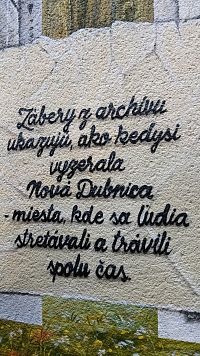 Zábery z archívu
ukazujú, ako kedysi
vyzerala
Nová Dubnica
- miesta, kde sa ľudia
stretávali a trávili
spolu čas.